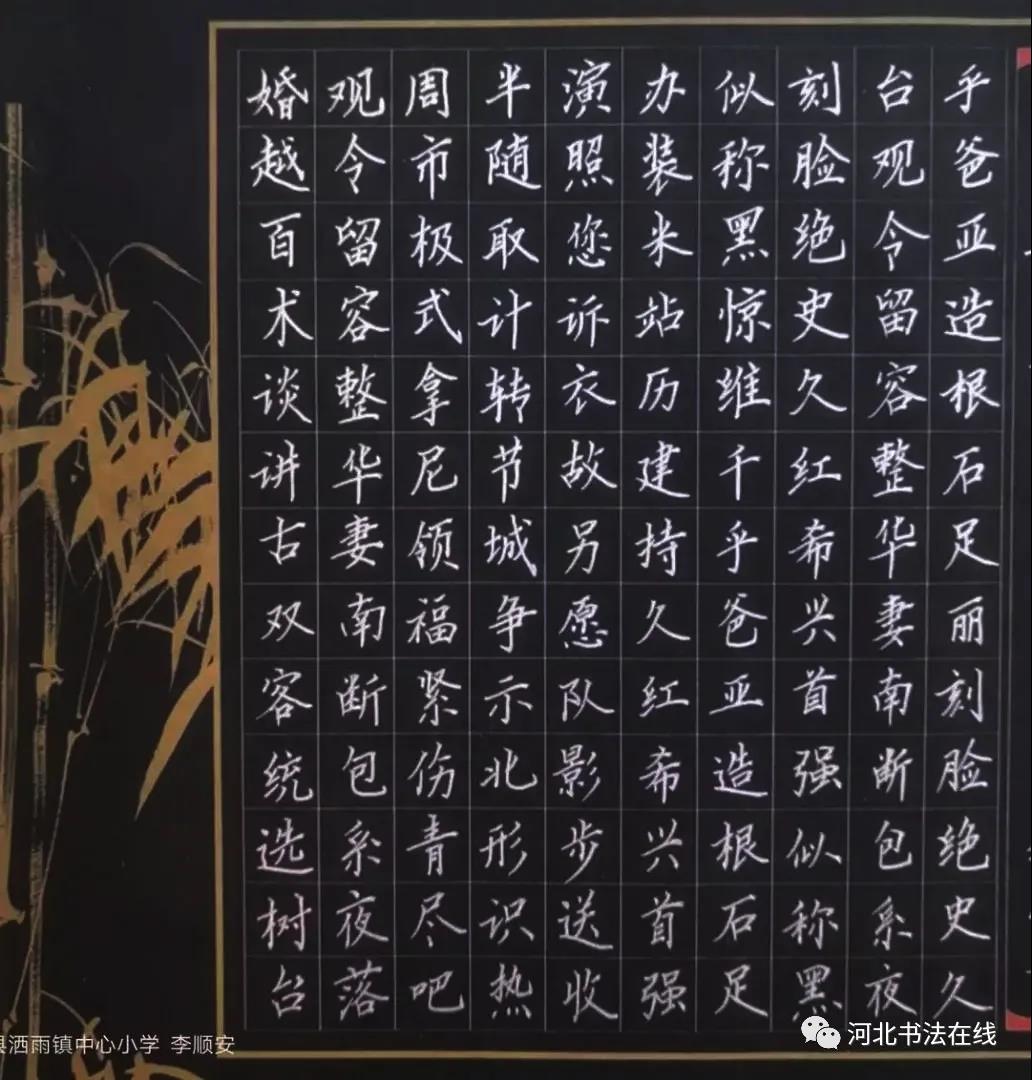 婚越百术谈讲古双客统选树台
观令留容整华妻南断包系夜落
周市极式拿尼领福紧伤青尽吧
半随取计转节城争示北形识热
演照您诉衣故另愿队影步送收
办装米站历建持久红希兴首强
似称黑惊维千乎爸亚造根石足
刻脸绝史久红希兴首强似称黑
台观令留容整华妻南断包系夜
乎爸亚造根石足丽刻脸绝史久
县洒雨镇中心小学 李顺安
河北书法在线